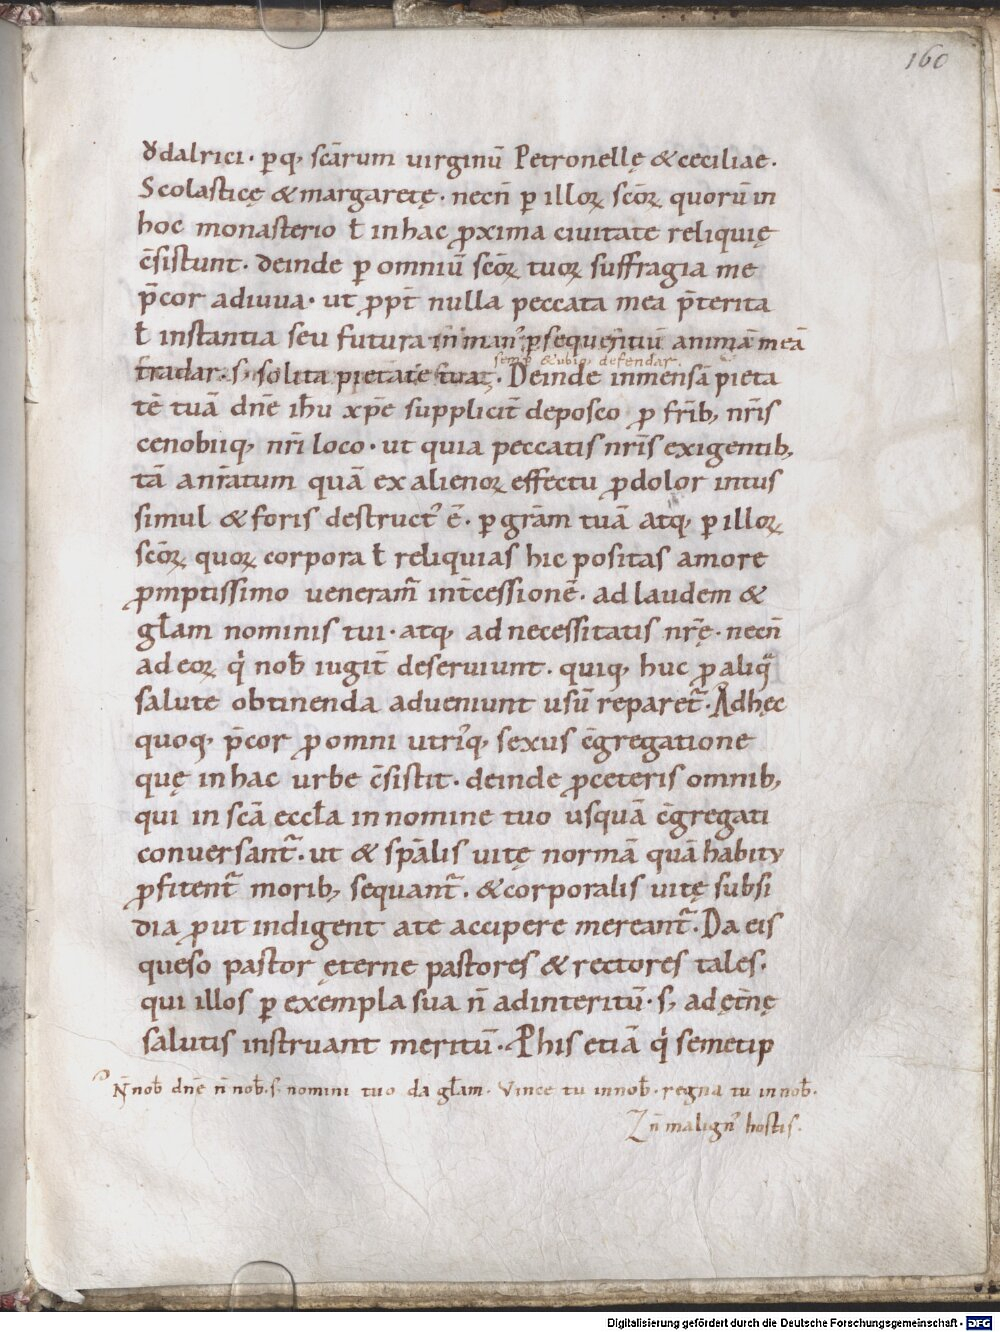 160
Ǒdalrici. ꝑq; scārum uirginū Petronellę & ceciliae.
Scolasticę & margaretę. necn̄ ꝑ illoꝝ scōꝝ quorū in
hoc monasterio ł in hac ꝓxima ciuitate reliquię
c̄sistunt. deinde ꝑ omniū scōꝝ tuoꝝ suffragia me
p̄cor adiuua. ut ꝓpt̄ nulla peccata mea p̄terita
ł instantia seu futura in man᾿ ꝑsequentiū animā meā
semꝑ & ubiq; defendar.
tradar. s; solita pietate tuaꝫ. Deinde inmensā pieta
tē tuā dn̄e ih̄u xp̄e suppliciт̄ deposco ꝓ frīb; nr̄is
cenobiiq; nr̄i loco. ut quia peccatis nr̄is exigentib;
tā anr̄atum quā ex alienoꝝ effectu ꝓdolor intus
simul & foris destruct᾿ ē. ꝑ grām tuā atq; ꝑ illoꝝ
scōꝝ quoꝝ corpora ł reliquias hic positas amore
ꝓmptissimo ueneram̄ int̄cessionē. ad laudem &
gl̄am nominis tui. atq; ad necessitatis nr̄ę. necn̄
ad eoꝝ qͥ nob̄ iugit̄ deseruiunt. quiq; huc ꝓ aliqͣ
salute obtinenda adueniunt usū reparet᷑. Adhęc
quoq; p̄cor ꝓ omni utri᾿q; sexus c̄gregatione
quę in hac urbe c̄sistit. deinde ꝓ ceteris omnib;
qui in scā eccl̄a in nomine tuo usquā c̄gregati
conuersant᷑. ut & spālis uitę normā quā habitu
ꝓfitent᷑ morib; sequant᷑. & corporalis uitę subsi
dia ꝓut indigent a te accipere mereant᷑. Da eis
queso pastor ęterne pastores & rectores tales.
qui illos ꝑ exempla sua n̄ ad interitū. s; ad ęt̄nę
salutis instruant meritū. P his etiā qͥ semetip
N̄ nob̄ dn̄e n̄ nob̄. s; nomini tuo da gl̄am. Vince tu in nob̄. regna tu in nob̄.
n̄ malign᾿ hostis.
Digitalisierung gefördert durch die Deutsche Forschungsgemeinschaft - DFG